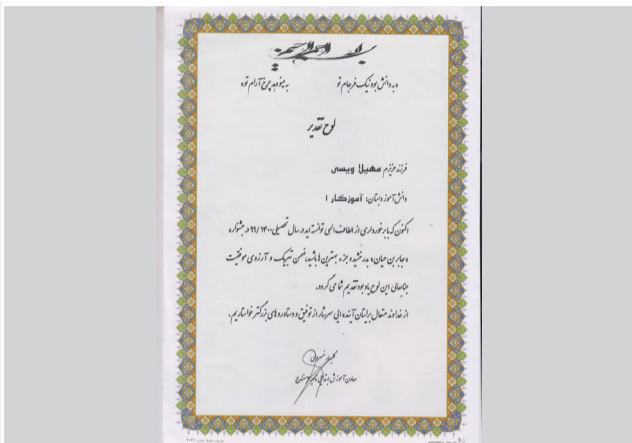 بسم الله الرحمن الرحیم
«به دانش بود نیک فرجام تو به مینو دهد چرخ آرام تو»
لوح تقدیر
فرزند عزیزم مهیلا ویسی
دانش آموز دبستان: آموزگار ۱
اکنون که با برخورداری از الطاف الهی توانسته اید در سال تحصیلی ۱۴۰۰/ ۹۹ در جشنواره
«جابر بن حیان» بدرخشید و جزء بهترین ها باشید، ضمن تبریک و آرزوی موفقیت
جنابعالی این لوح یادبود تقدیم شما می گردد.
از خداوند متعال برایتان آینده ایی سرشار از توفیق و دستاوردهای بزرگتر خواستاریم.
معاون آموزش ابتدایی سنندج